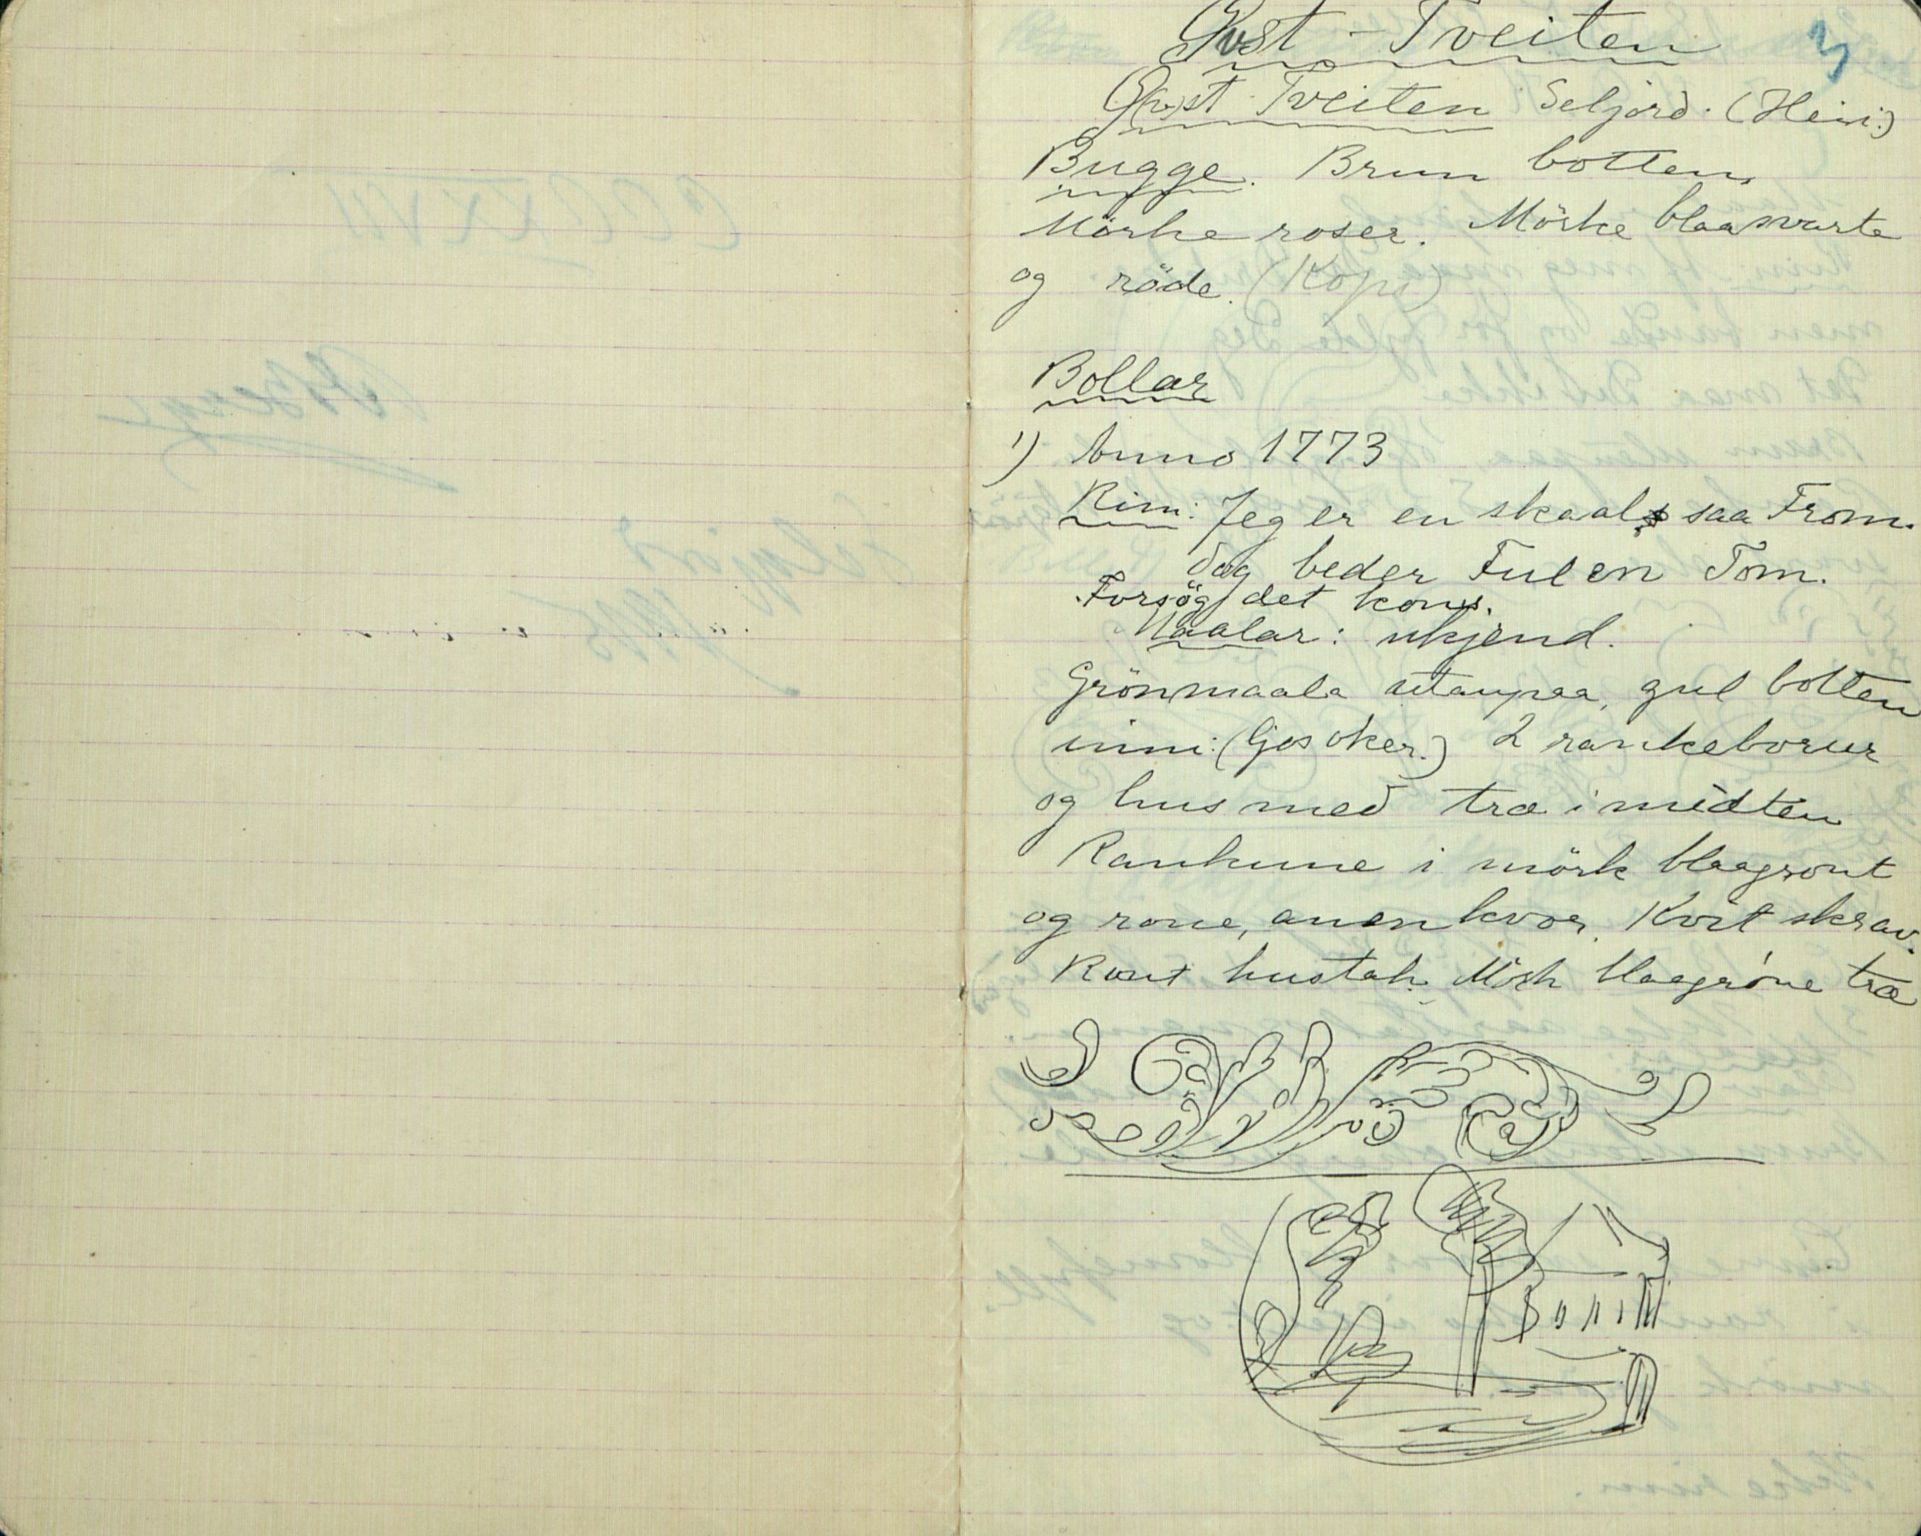 Qvst - Tveiten
3
Q(v)st Tveiten Seljord. (Heim:)
Bugge. Brun botten
Mörke roser. Mörke blaasvarte
og röde. (Kopi)
Bollar
1) Anno 1773
Rim: Jeg er en skaal saa From.
Jag beder Fulen Tom.
Forsög det kom.
Maalar: ukjend.
Grönmaala utanpaa, gul botten
inni: (Ljos oker.) 2 rankeborur
og hus med træ i midten
Rankune i mörk blaagrönt
og raue, anenkvor. Kvit skrav.
Raut hustak. Mörk blaagröne træ